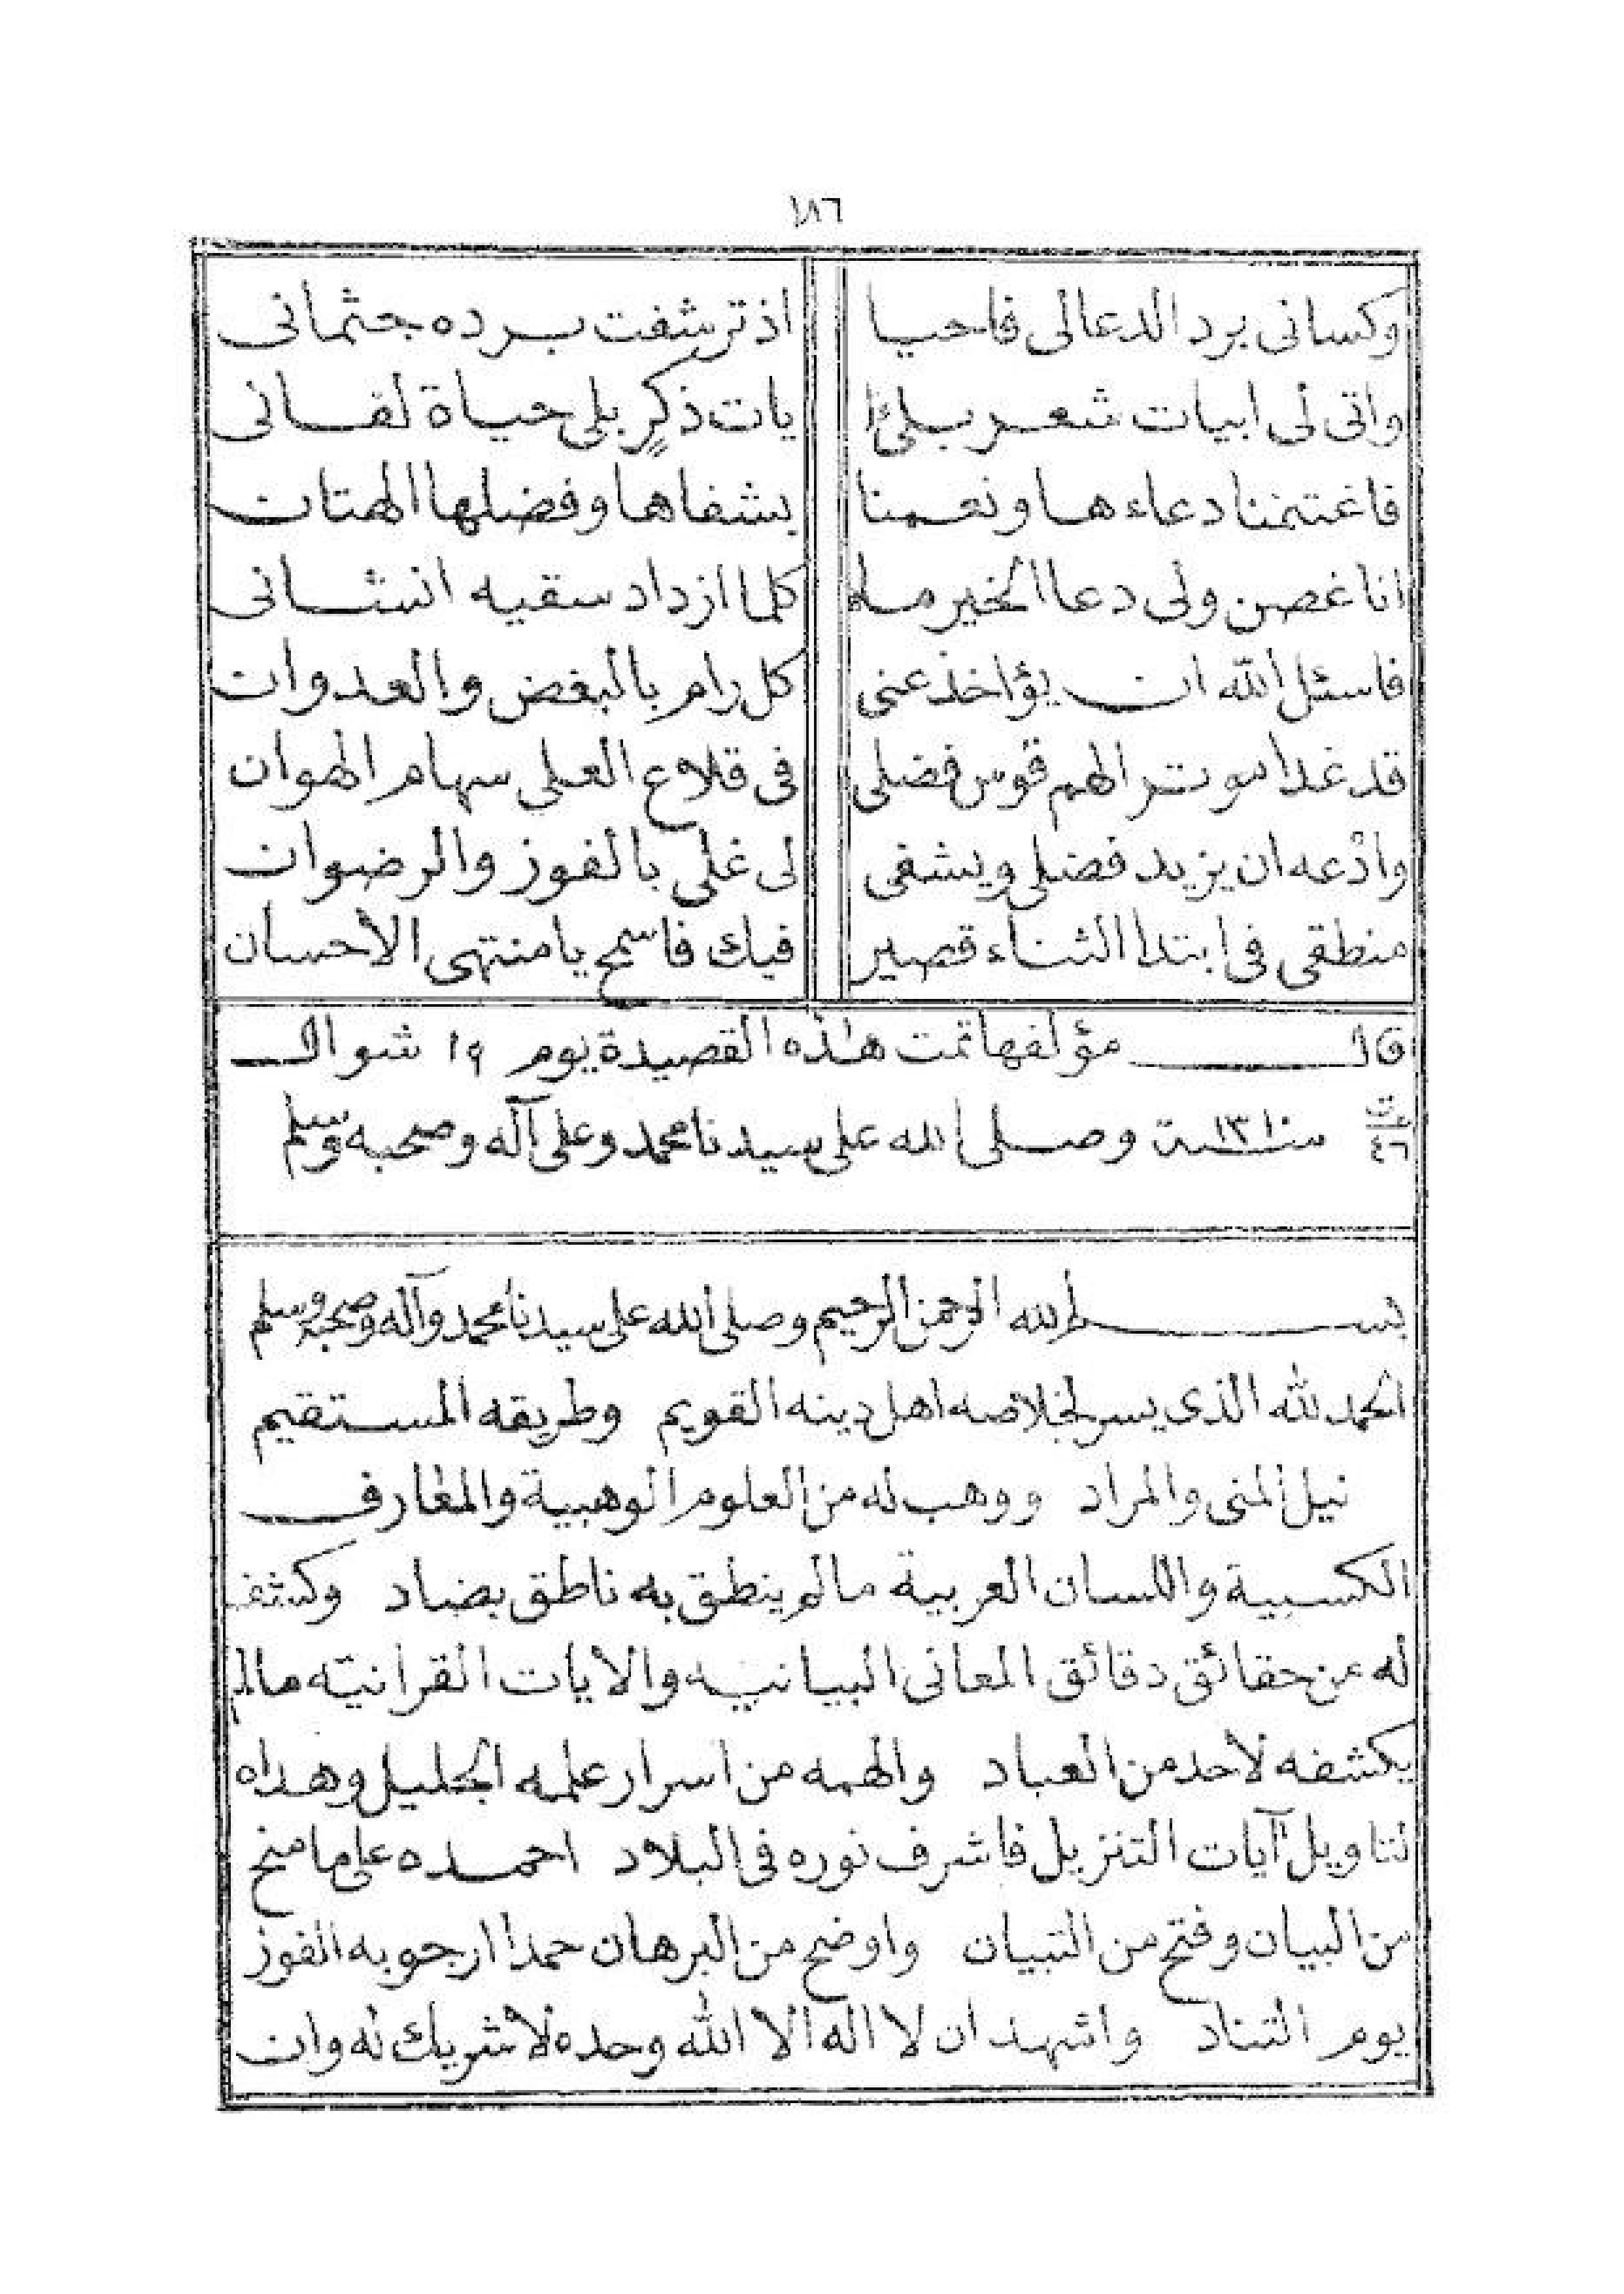 ١٨٦
وكسانى برد الدعالى فاحيا اذ ترشفت برده جثمانى
واتى لى ابيات شعر بلى يات ذكر بلى حياة لفانى
فاغتنمنا دعاءها ونعمنا بشفاها وفضلها الهتان
انا غصن ولى دعا الخير ماء كلما ازداد سقيه انثانى
فاسئل الله ان يؤاخذ عنى كل رام بالبغض والعدوان
قد غدا موتر الهم قوس فضلى فى قلاع العلى سهام الهوان
وادعه ان يزيد فضلى ويشفى لى غلى بالفوز والرضوان
منطقى فى ابتدا الثناء قصير فيك فاسمح يا منتهى الاحسان
قال مؤلفها تمت هذه القصيدة يوم ١٩ شوال
سنة ١٣١٠ وصلى الله على سيدنا محمد وعلى آله وصحبه وسلم
٤٦
بسم الله الرحمن الرحيم وصلى الله على سيدنا محمد وآله وصحبه وسلم
الحمد لله الذى يسر لخلاصه اهل دينه القويم وطريقه المستقيم
نيل المنى والمراد ووهب له من العلوم الوهبية والمعارف
الكسبية واللسان العربية ما لم ينطق به ناطق بضاد وكشف
له عن حقائق دقائق المعانى البيانيه والايات القرانيّه مالم
يكشفه لأحد من العباد والهمه من اسرار علمه الجليل وهداه
لتاويل آيات التنزيل فاشرف نوره فى البلاد احمده على ما منح
من البيان وفتح من التبيان واوضح من البرهان حمدا ارجو به الفوز
يوم التناد واشهد ان لا اله الا الله وحده لا شريك له وان